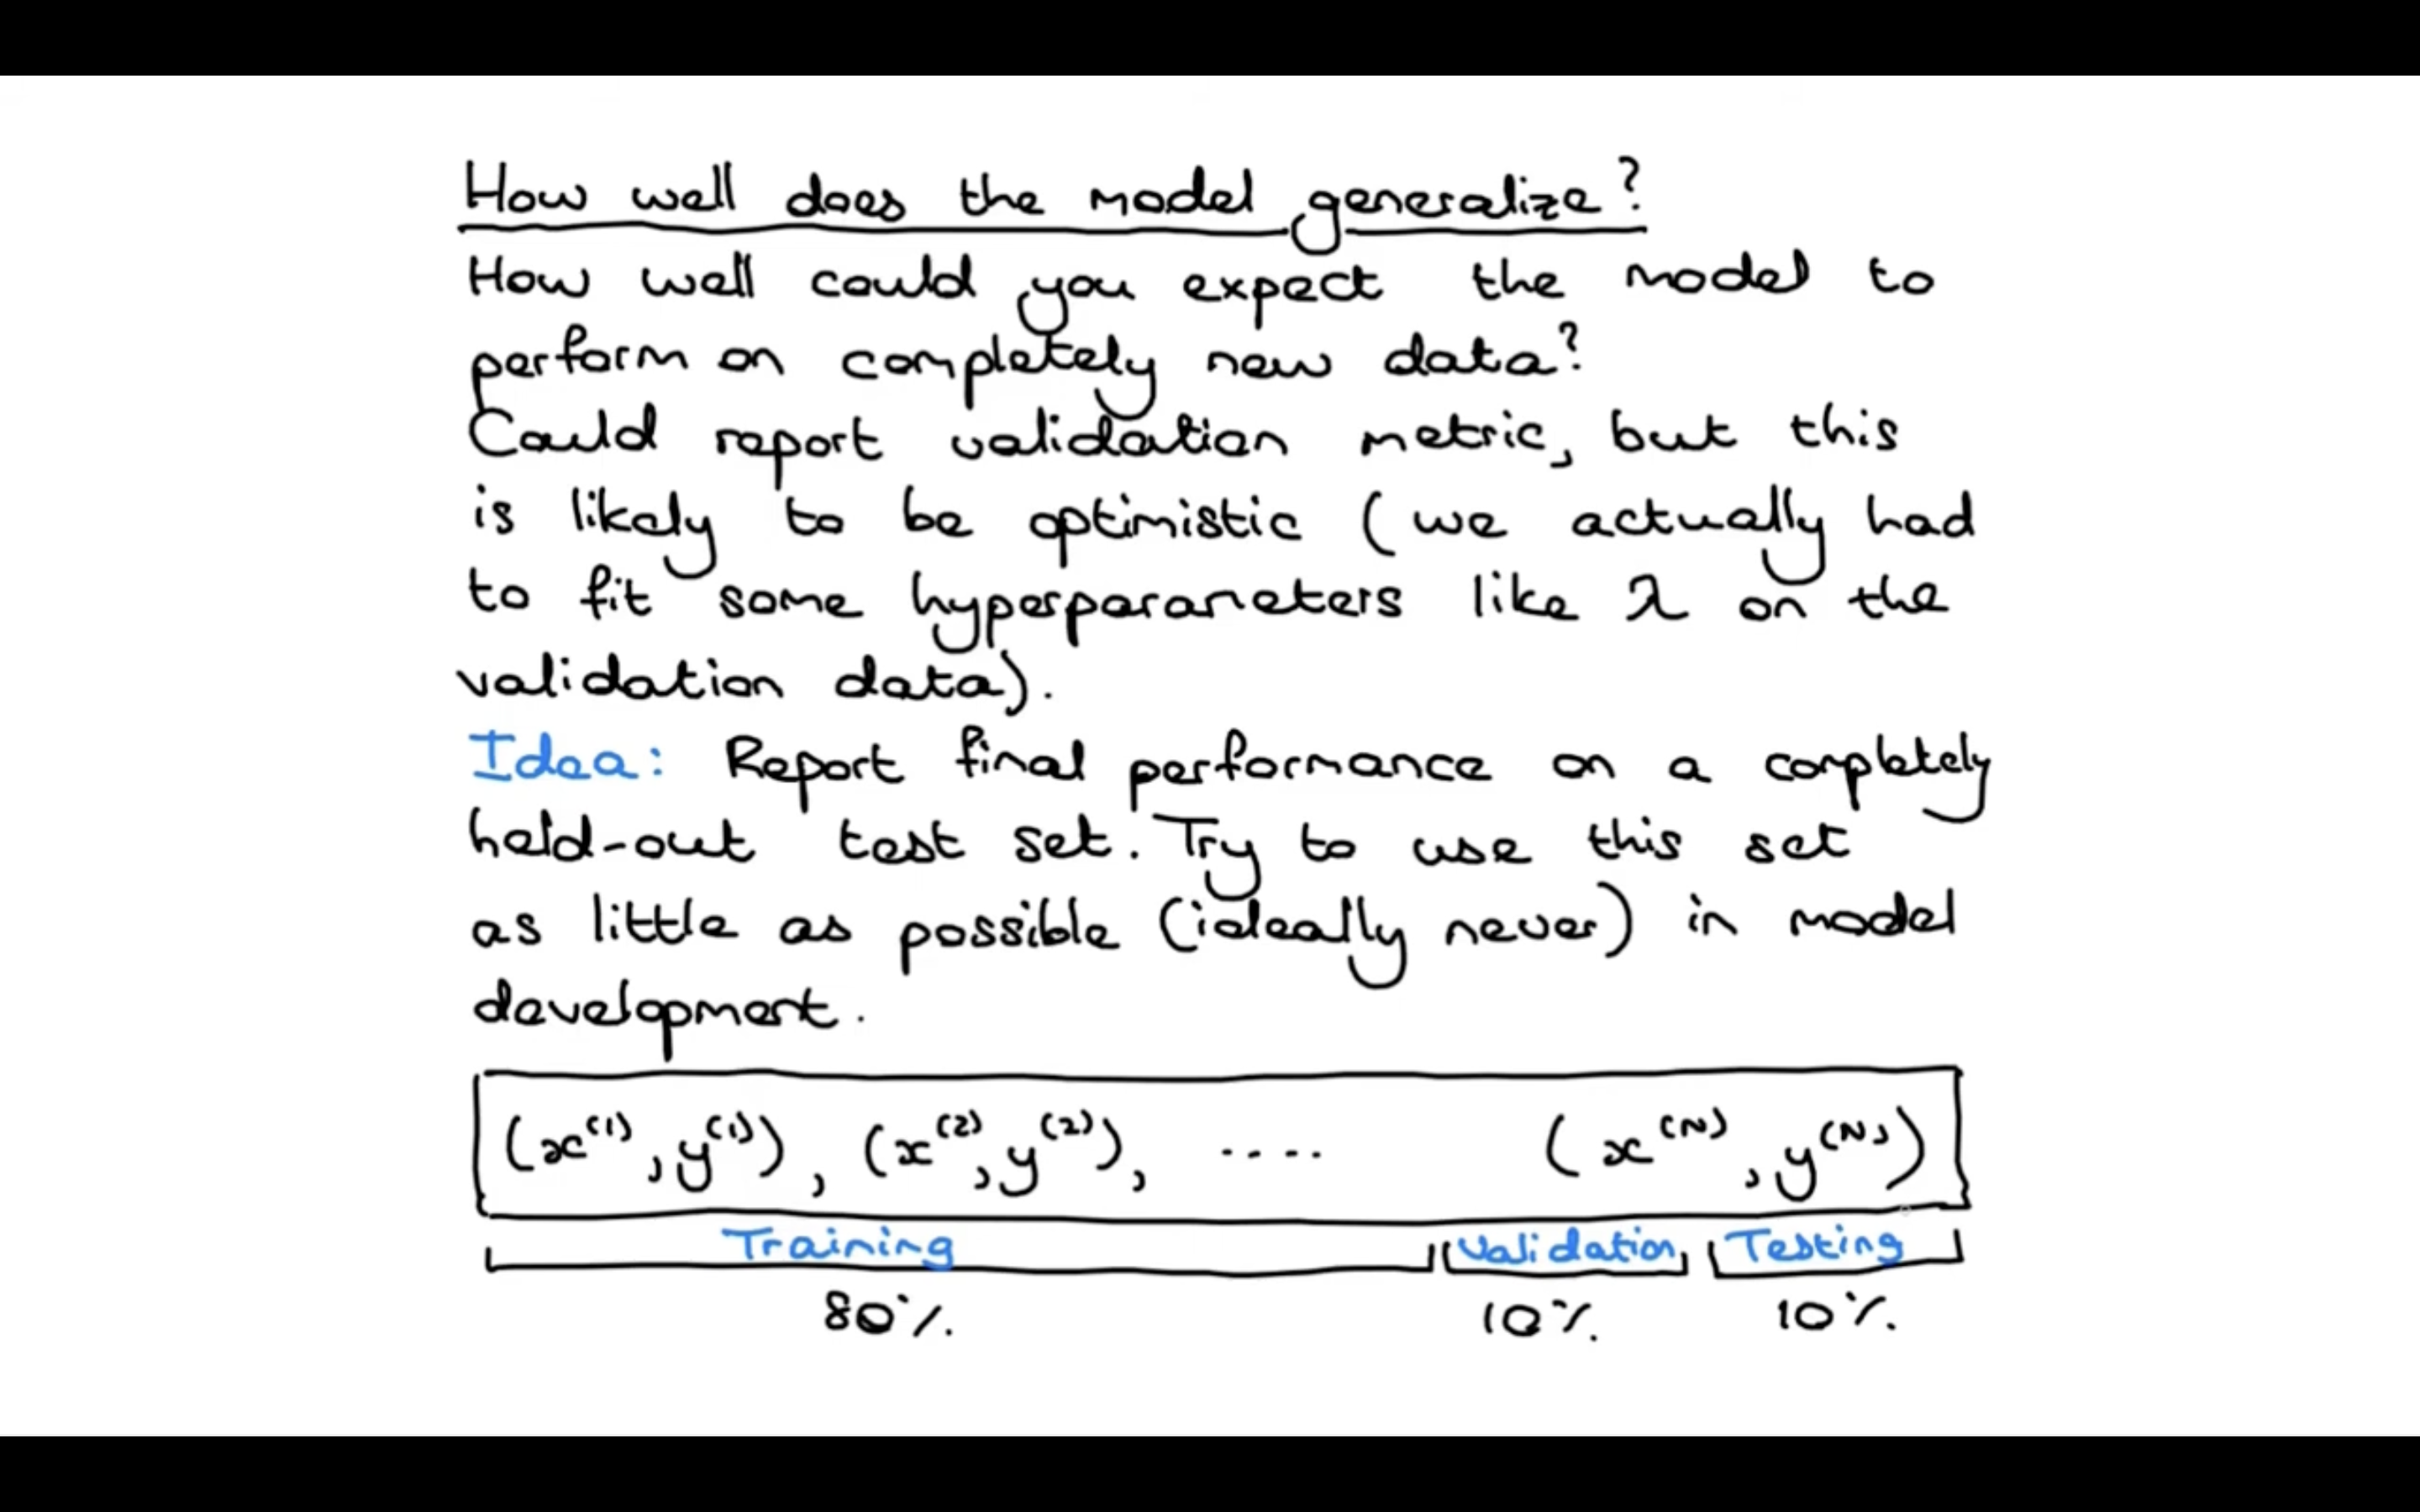 How well does the model generalize?
How well could you expect the model to
perform on completely new data?
Could report validation metric, but this
is likely to be optimistic (we actually had
to fit some hyperparameters like λ on the
validation data).
Idea: Report final performance on a completely
held-out test set. Try to use this set
as little as possible (ideally never) in model
development.
(x⁽¹⁾, y⁽¹⁾), (x⁽²⁾, y⁽²⁾), .... (x⁽ᴺ⁾, y⁽ᴺ⁾)
Training Validation Testing
80% 10% 10%